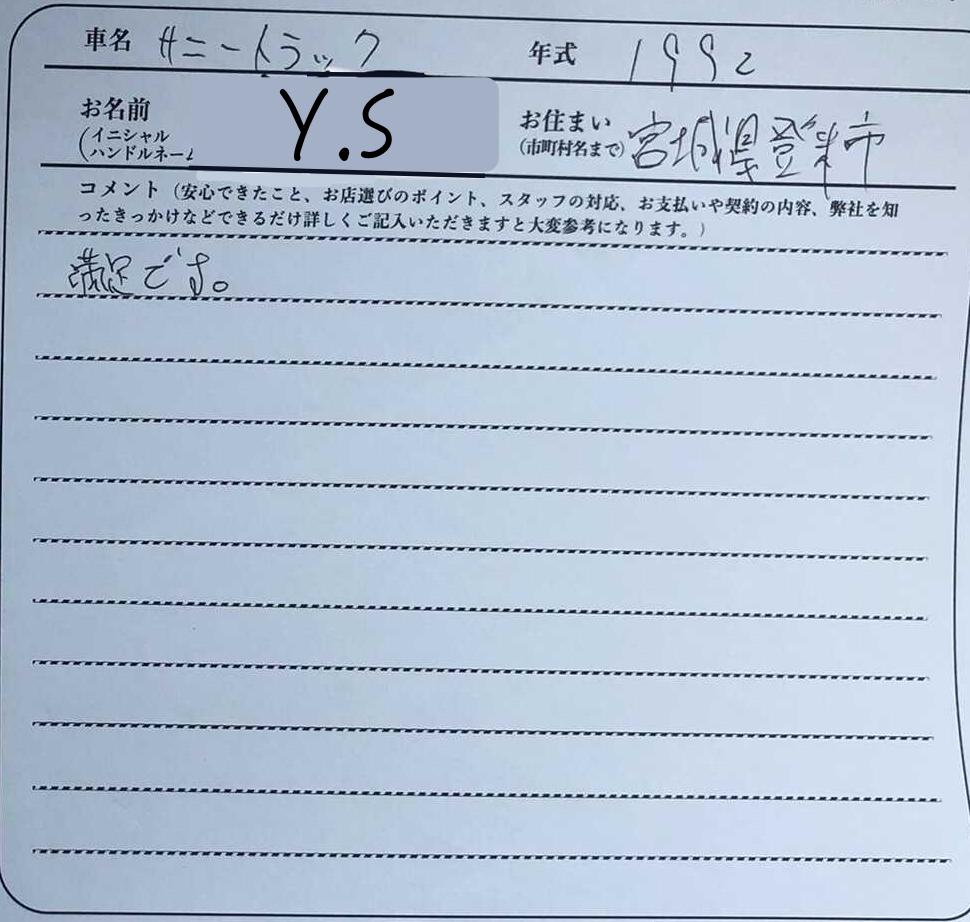 車名 サニートラック 年式 1992
お名前 Y.S お住まい 宮城県登米市
(イニシャル (市町村名まで)
ハンドルネーム
コメント（安心できたこと、お店選びのポイント、スタッフの対応、お支払いや契約の内容、弊社を知
ったきっかけなどできるだけ詳しくご記入いただきますと大変参考になります。）
満足です。